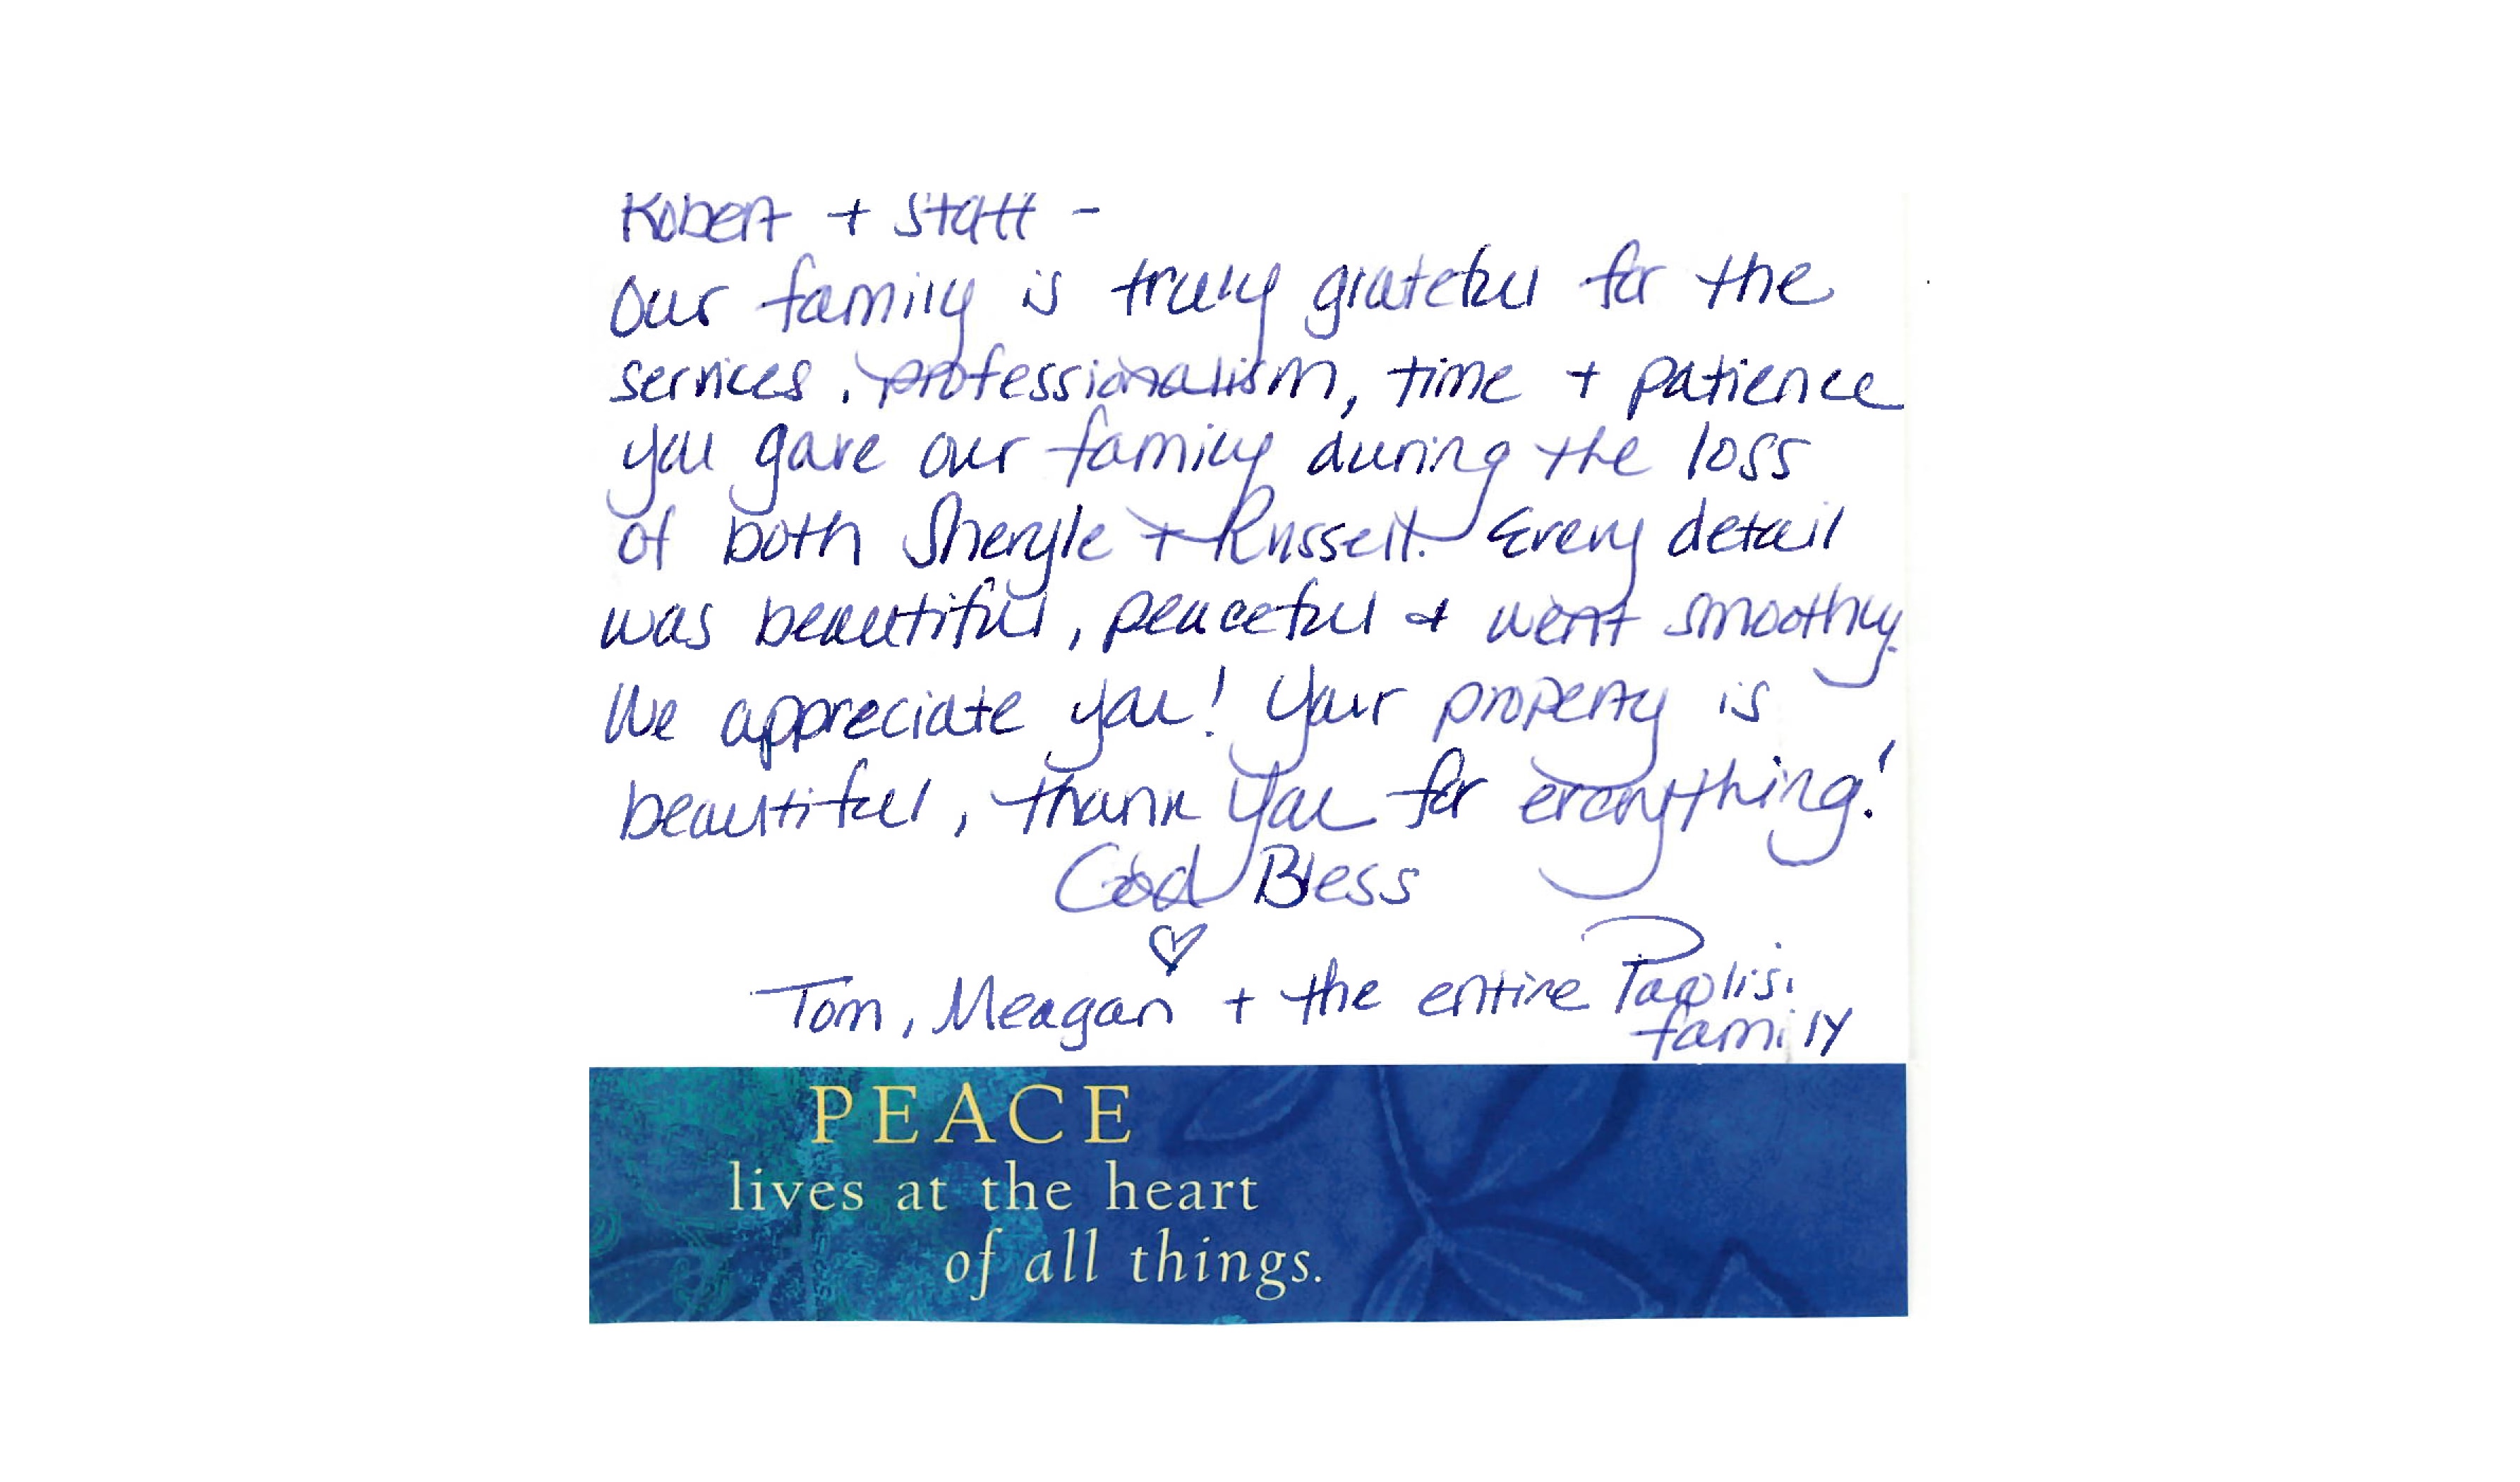 Robert + Staff -
Our family is truly grateful for the
services, professionalism, time + patience
you gave our family during the loss
of both Sheryle + Russell. Every detail
was beautiful, peaceful + went smoothly.
We appreciate you! Your property is
beautiful, thank you for everything!
God Bless
♡
Tom, Meagan + the entire Paolisi
family
PEACE
lives at the heart
of all things.